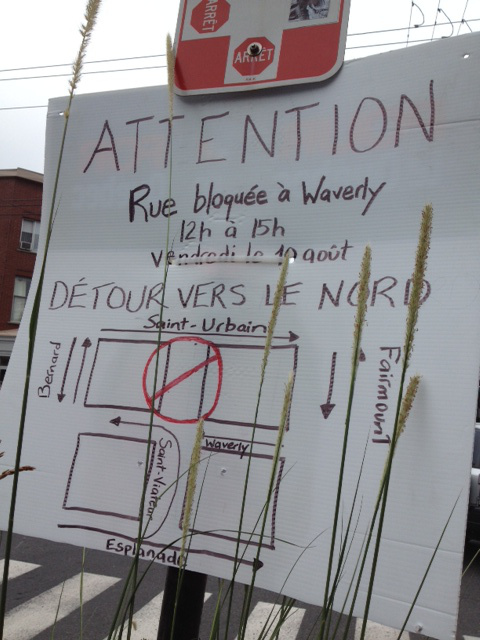 ARRÊT
ARRÊT
ATTENTION
Rue bloquée à Waverly
12h à 15h
Vendredi le août
DÉTOUR VERS LE NORD
Saint-Urbain
Bernard
Fairmount
Waverly
Saint-Viateur
Esplanade